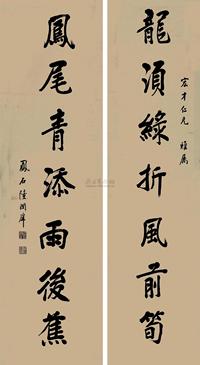 龍須綠折風前筍
宏才仁兄 雅屬
鳳尾青添雨後蕉
鳳石陸潤庠